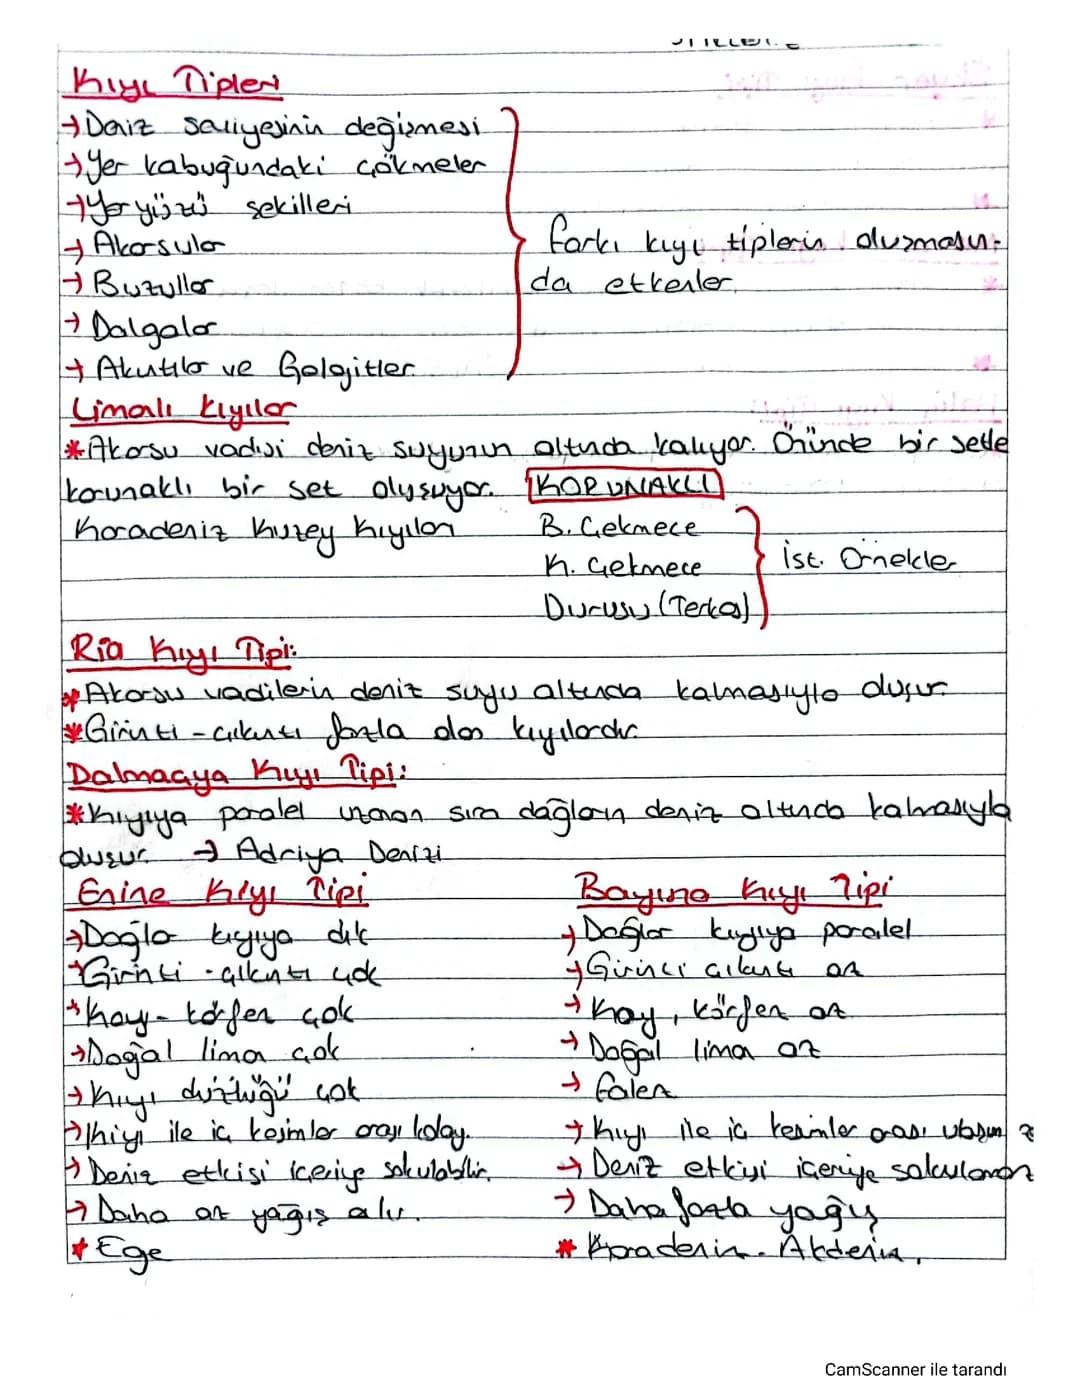 Kıyı Tipleri
→Deniz seviyesinin değişmesi
→Yer kabuğundaki çökmeler
→Yer yüzü şekilleri
→Akarsular
→Buzullar
→Dalgalar
→Akıntılar ve Gelgitler
farkı kıyı tiplerin oluşmasın-
da etkenler.
Limanlı kıyılar
*Akarsu vadisi deniz suyunun altında kalıyor. Önünde bir setle
korunaklı bir set oluşuyor. KORUNAKLI
Karadeniz Kuzey kıyıları
B. Çekmece
K. Çekmece
Durusu (Terkos)
İst. Örnekler
Ria Kıyı Tipi:
*Akarsu vadilerin deniz suyu altında kalmasıyla oluşur.
*Girinti-çıkıntı fazla olan kıyılardır.
Dalmaçya Kıyı Tipi:
*Kıyıya paralel uzanan sıra dağların deniz altında kalmasıyla
oluşur. → Adriya Denizi
Enine Kıyı Tipi
→Dağla kıyıya dik
→Girinti-çıkıntı çok
*Koy-körfez çok
→Doğal liman çok
→Kıyı düzlüğü çok
→Kıyı ile iç kesimler arası kolay.
→Deniz etkisi içeriye sokulabilir.
→Daha az yağış alır.
*Ege
Boyuna Kıyı Tipi
→Dağlar kıyıya paralel
→Girinti çıkıntı az
→Koy, körfez az
→Doğal liman az
→falez
→Kıyı ile iç kesimler arası ulaşım z
→Deniz etkisi içeriye sokulamaz
→Daha fazla yağış
*Karadeniz-Akdeniz,
CamScanner ile tarandı